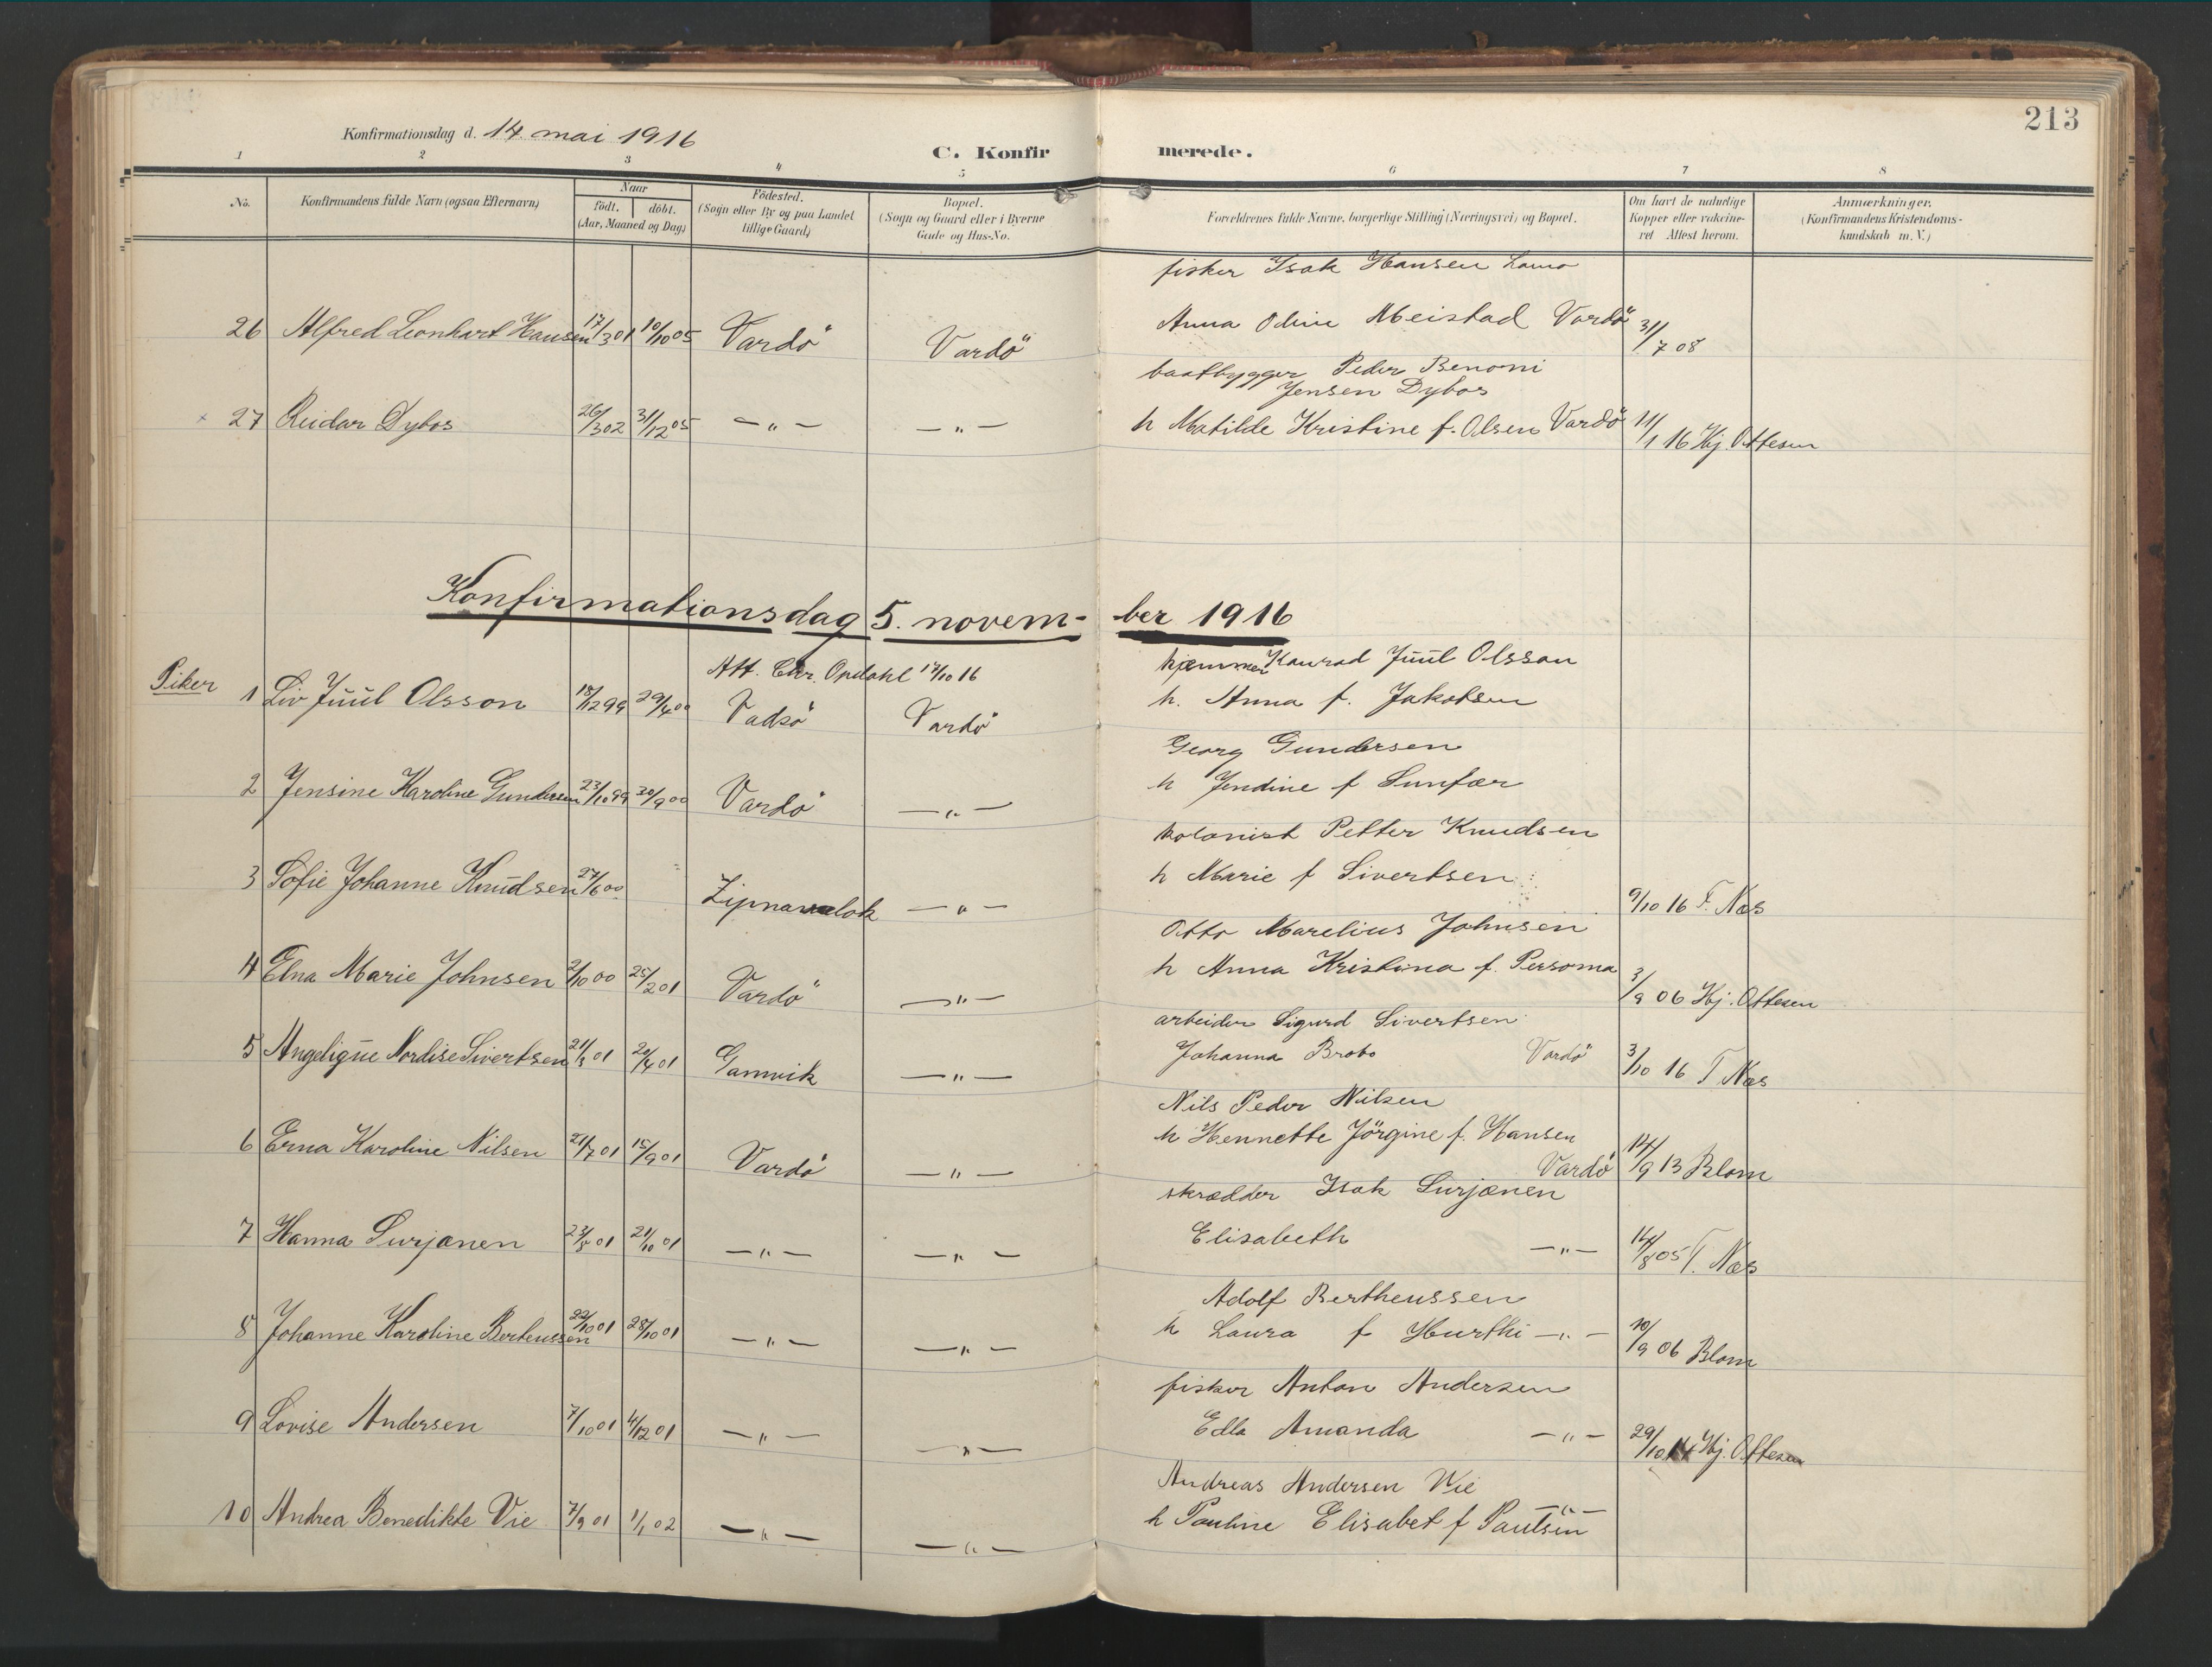 213
Konfirmationsdag d. 14. mai 1916
C. Konfirmerede.
1 2 3 4 5 6 7 8
No. Konfirmandens fulde Navn (ogsaa Efternavn) Naar födt. döbt. (Aar, Maaned og Dag) Födested. (Sogn eller By og paa Landet tillige Gaard) Bopæl. (Sogn og Gaard eller i Byerne Gade og Hus-No. Forældrenes fulde Navne, borgerlige Stilling (Næringsvei) og Bopæl. Om havt de naturlige Kopper eller vakcineret Attest herom. Anmærkninger. (Konfirmandens Kristendomskundskab m. V.)
fisker Isak Hansen
26 Alfred Leonhart Hansen 17/3 01 10/10 05 Vardö Vardö Anna Oline Meistad Vardö 31/7 08
baatbygger Peder Benoni
Jensen Dybos
× 27 Reidar Dybos 26/3 02 31/12 05 — " — — " — h Matilde Kristine f. Olsen Vardö 11/1 16 Hj. Ottesen
Konfirmationsdag 5. november 1916
Att. Chr. Opdahl 17/10 16 Konrad Juul Olsson
Piker 1 Liv Juul Olsson 18/12 99 29/4 00 Vadsö Vardö h. Anna f. Jakobsen
Georg Gundersen
2 Jensine Karoline Gundersen 23/10 99 30/9 00 Vardö — " — h Jendine f Sunfær
kolonist Petter Knudsen
3 Sofie Johanne Knudsen 27/6 00 Zipnavolok — " — h Marie f Sivertsen 9/10 16 T. Næs
Otto Marelius Johnsen
4 Elna Marie Johnsen 2/10 00 25/2 01 Vardö — " — h Anna Kristina f. Persoma 3/9 06 Hj. Ottesen
arbeider Sigurd Sivertsen
5 Angelique Nordise Sivertsen 21/3 01 20/4 01 Gamvik — " — Johanna Brobo Vardö 3/10 16 T Næs
Nils Peder Nilsen
6 Erna Karoline Nilsen 21/7 01 15/9 01 Vardö — " — h Hennette Jörgine f. Hansen
Vardö 14/9 13 Blom
skrædder Isak Surjænen
7 Hanna Surjanen 23/8 01 21/10 01 — " — — " — Elisabeth — " — 14/8 05 T. Næs
Adolf Bertheussen
8 Johanne Karoline Berteussen 22/10 01 28/10 01 — " — — " — h Laura f Hurthi — " — 10/9 06 Blom
fisker Anton Andersen
9 Lovise Andersen 7/10 01 4/12 01 — " — — " — Ella Amanda — " — 29/10 14 Hj. Ottesen
Andreas Andersen Vie
10 Andrea Benedikte Vie 7/9 01 1/1 02 — " — — " — h Pauline Elisabet f Pautsin — " —